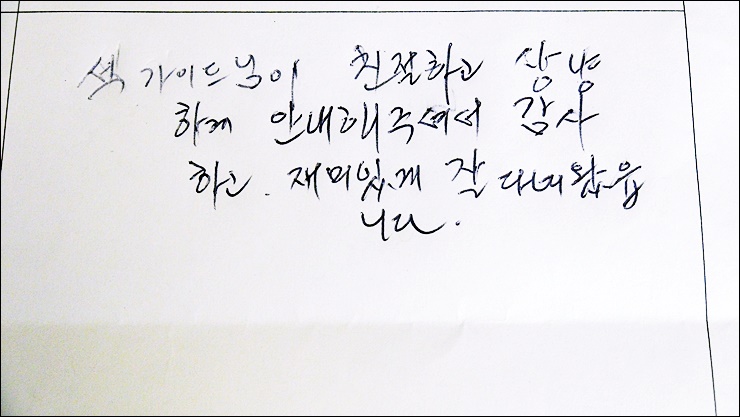 섹 가이드님이 친절하고 상냥
하게 안내해주셔서 감사
하고. 재미있게 잘 다녀왔읍
니다.